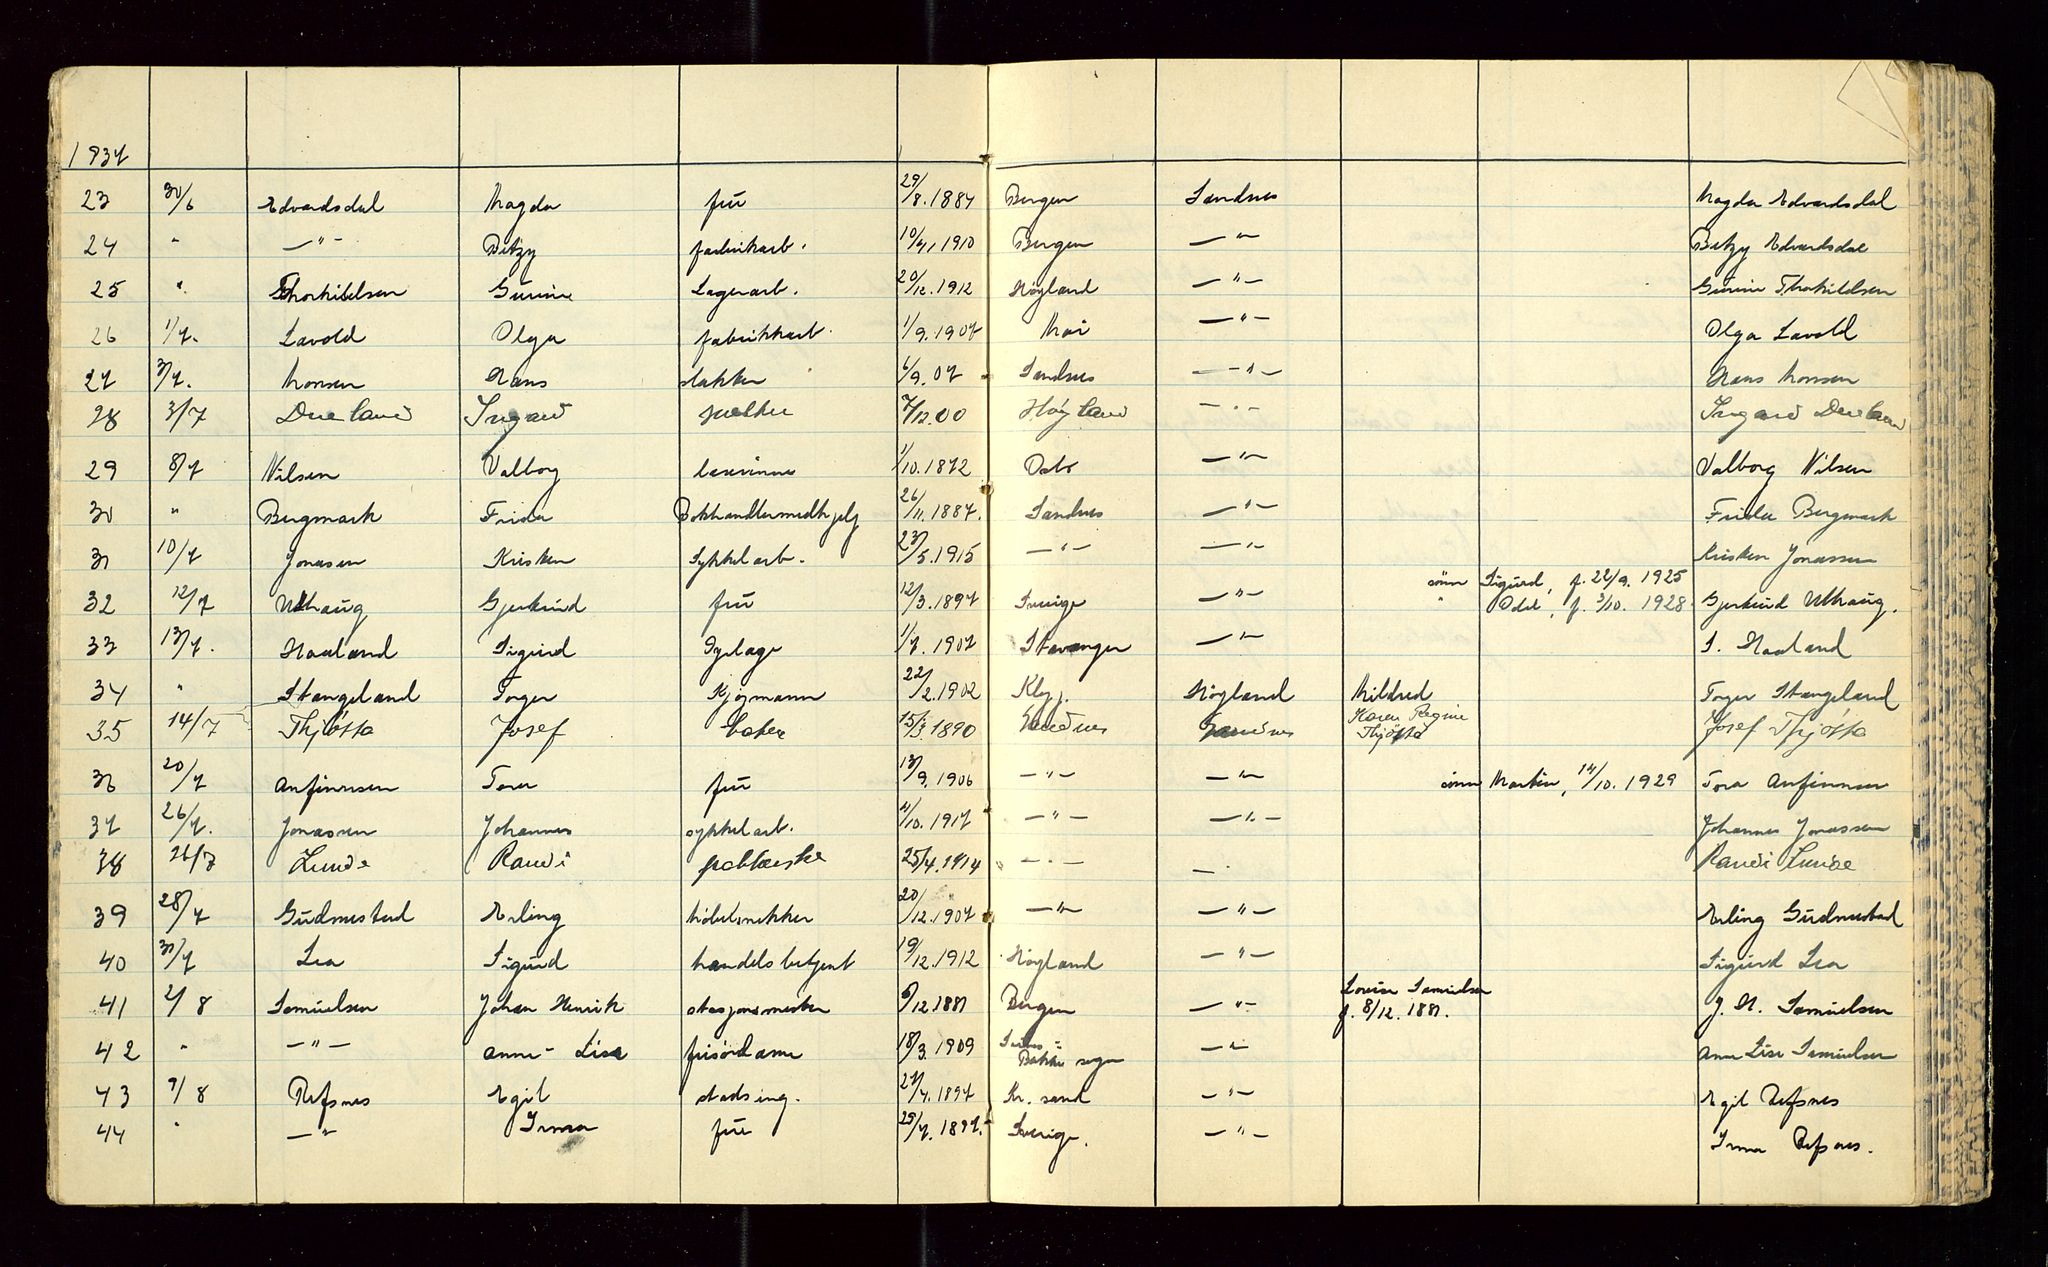 1937
23 30/6 Edvardsdal Magda frü 29/8.1884 Bergen Sandnes Magda Edvardsdal
24 " —"— Betzy fabrikarb. 10/11.1910 Bergen —"— Betzy Edvardsdal
25 " Thorkildsen Gurine Lagerarb. 20/12.1912 Høyland —"— Gurine Thorkildsen
26 1/7. Lavold Olga fabrikkarb. 1/9.1907 Moi —"— Olga Lavold
27 3/7. Monsen Hans slakter 6/9.07 Sandnes —"— Hans Monsen
28 3/7 Dueland Ingard 7/12.00 Høyland —"— Ingard Dueland
29 8/7 Nilsen Valborg lærerinne 1/10.1872 Oslo —"— Valborg Nilsen
30 " Bergmark Frida Bokhandlermedhjelp 26/11.1887. Sandnes —"— Frida Bergmark
31 10/7 Jonasen Kristen Sykkelarb. 23/5.1915 —"— —"— Kristen Jonassen
32 12/7 Uthaug Gjertrud frü 12/3.1897 Sverige —"— sønn Sigurd, f. 22/9. 1925
" Odd, f. 3/10. 1928. Gjertrud Uthaug.
33 13/7. Haaland Sigurd 1/7.1907 Stavanger —"— S. Haaland
34 " Stangeland Toger Kjøpmann 22/2.1902 Klepp. Høyland Mildred Toger Stangeland
35 14/7 Thjøtta Josef baker 15/3.1890 Sandnes Sandnes Karen Regine
Thjøtta Josef Thjøtta
36 20/7 Anfinnsen Tora frü 13/9.1906 —"— —"— sønn Martin, 14/10.1929 Tora Anfinnsen
37 26/7. Jonassen Johannes sykkelarb. 4/10.1917 —"— —"— Johannes Jonassen
38 26/7 Lunde Randi 25/4.1914 —"— — Randi Lunde
39 28/7 Gudmestad Erling Møbelsnekker 20/12.1907 —"— —"— Erling Gudmestad
40 31/7 Lea Sigurd handelsbetjent 19/12.1912 Høyland —"— Sigurd Lea
41 2/8 Samuelsen Johan Henrik stasjonsmester 6/12.1881 Bergen —"— Lovise Samuelsen
f. 8/12. 1881. J. H. Samuelsen
42 " —"— Anne-Lise frisørdame 18/3.1909 Bakke sogn —"— Anne Lise Samuelsen
43 7/8 Refsnes Egil stadsing. 27/4.1897 Kr. sand —"— Egil Refsnes
44 " —"— Irma frü 29/7.1897. Sverige. —"— Irma Refsnes.